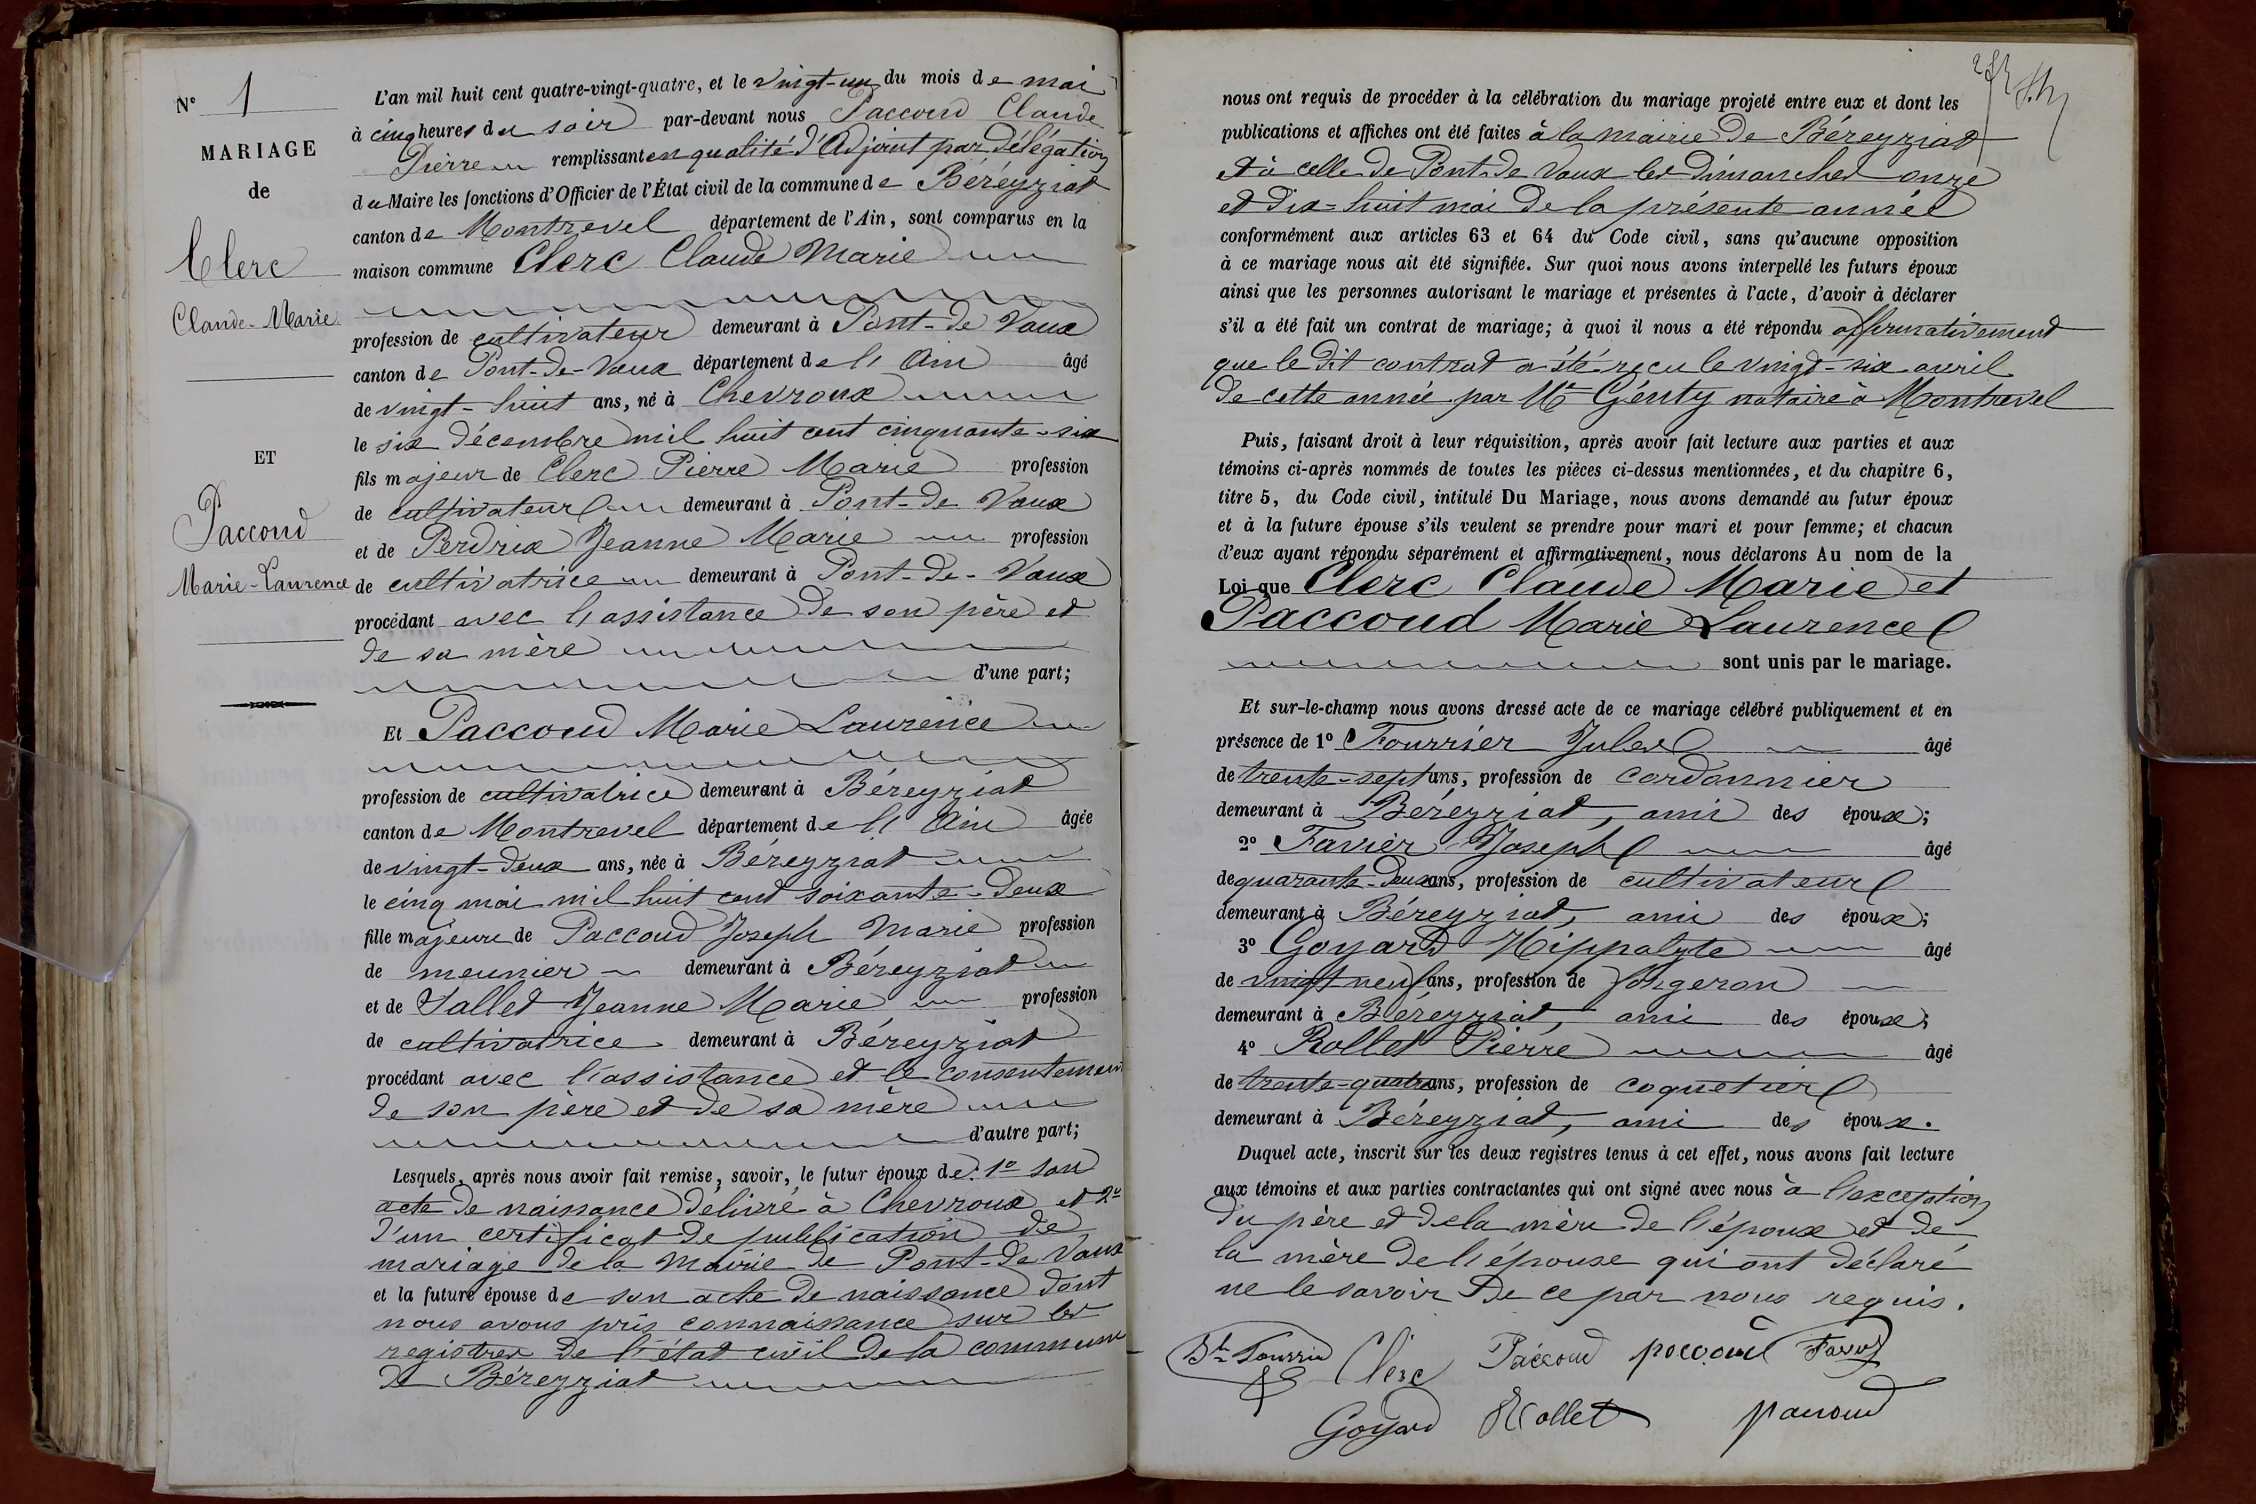 N° 1
MARIAGE
de
Clerc
Claude-Marie
ET
Paccoud
Marie-Laurence
L'an mil huit cent quatre-vingt-quatre, et le vingt-un du mois de mai
à cinq heures du soir par-devant nous Paccoud Claude
Pierre remplissant en qualité d'Adjoint par délégation
du Maire les fonctions d'Officier de l'État civil de la commune de Béréyziat
canton de Montrevel département de l'Ain, sont comparus en la
maison commune Clerc Claude Marie
profession de cultivateur demeurant à Pont-de Vaux
canton de Pont-de-Vaux département de l'Ain âgé
de vingt-huit ans, né à Chevroux
le six décembre mil huit cent cinquante-six
fils majeur de Clerc Pierre Marie profession
de cultivateur demeurant à Pont-de Vaux
et de Perdrix Jeanne Marie profession
de cultivatrice demeurant à Pont-de-Vaux
procédant avec l'assistance de son père et
de sa mère
d'une part;
Et Paccoud Marie Laurence
profession de cultivatrice demeurant à Béreyziat
canton de Montrevel département de l'Ain âgée
de vingt-deux ans, née à Béreyziat
le cinq mai mil huit cent soixante-deux
fille majeure de Paccoud Joseph Marie profession
de meunier demeurant à Béreyziat
et de Sallet Jeanne Marie profession
de cultivatrice demeurant à Béreyziat
procédant avec l'assistance et le consentement
de son père et de sa mère
d'autre part;
Lesquels, après nous avoir fait remise, savoir, le futur époux de: 1° son
acte de naissance délivré à Chevroux et 2°
d'un certificat de publication de
mariage de la Mairie de Pont-de Vaux
et la future épouse de son acte de naissance dont
nous avons pris connaissance sur les
registres de l'état civil de la commune
de Béreyziat
nous ont requis de procéder à la célébration du mariage projeté entre eux et dont les
publications et affiches ont été faites à la mairie de Béreyziat
et à celle de Pont-de Vaux les dimanches onze
et dix-huit mai de la présente année
conformément aux articles 63 et 64 du Code civil, sans qu'aucune opposition
à ce mariage nous ait été signifiée. Sur quoi nous avons interpellé les futurs époux
ainsi que les personnes autorisant le mariage et présentes à l'acte, d'avoir à déclarer
s'il a été fait un contrat de mariage; à quoi il nous a été répondu affirmativement
que le dit contrat a été reçu le vingt-six avril
de cette année par Me Génty notaire à Montrevel
Puis, faisant droit à leur réquisition, après avoir fait lecture aux parties et aux
témoins ci-après nommés de toutes les pièces ci-dessus mentionnées, et du chapitre 6,
titre 5, du Code civil, intitulé Du Mariage, nous avons demandé au futur époux
et à la future épouse s'ils veulent se prendre pour mari et pour femme; et chacun
d'eux ayant répondu séparément et affirmativement, nous déclarons Au nom de la
Loi que Clerc Claude Marie et
Paccoud Marie Laurence
sont unis par le mariage.
Et sur-le-champ nous avons dressé acte de ce mariage célébré publiquement et en
présence de 1° Fourrier Jules âgé
de trente-sept ans, profession de cordonnier
demeurant à Béréyziat, ami des époux;
2° Favier Joseph âgé
de quarante-deux ans, profession de cultivateur
demeurant à Béreyziat, ami des époux;
3° Goyard Hippolyte âgé
de vingt neuf ans, profession de forgeron
demeurant à Béreyziat, ami des époux;
4° Rollet Pierre âgé
de trente-quatre ans, profession de coquetier
demeurant à Béreyziat, ami des époux.
Duquel acte, inscrit sur les deux registres tenus à cet effet, nous avons fait lecture
aux témoins et aux parties contractantes qui ont signé avec nous à l'exception
du père et de la mère de l'époux et de
la mère de l'épouse qui ont déclaré
ne le savoir De ce par nous requis.
Clerc Paccoud paccoud Favier
Goyard Rollet paccoud